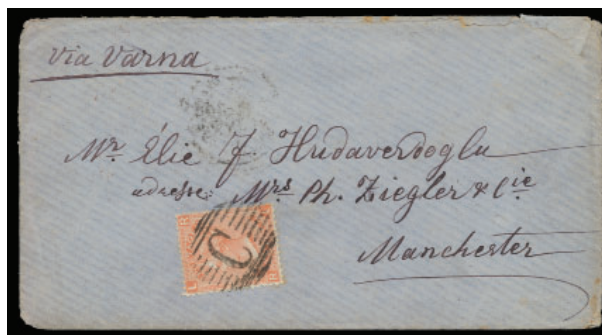 Via Varna
Mr. Élie J. Hudaverdoglu
adresse: Mrs Ph. Ziegler & Cie
Manchester
C